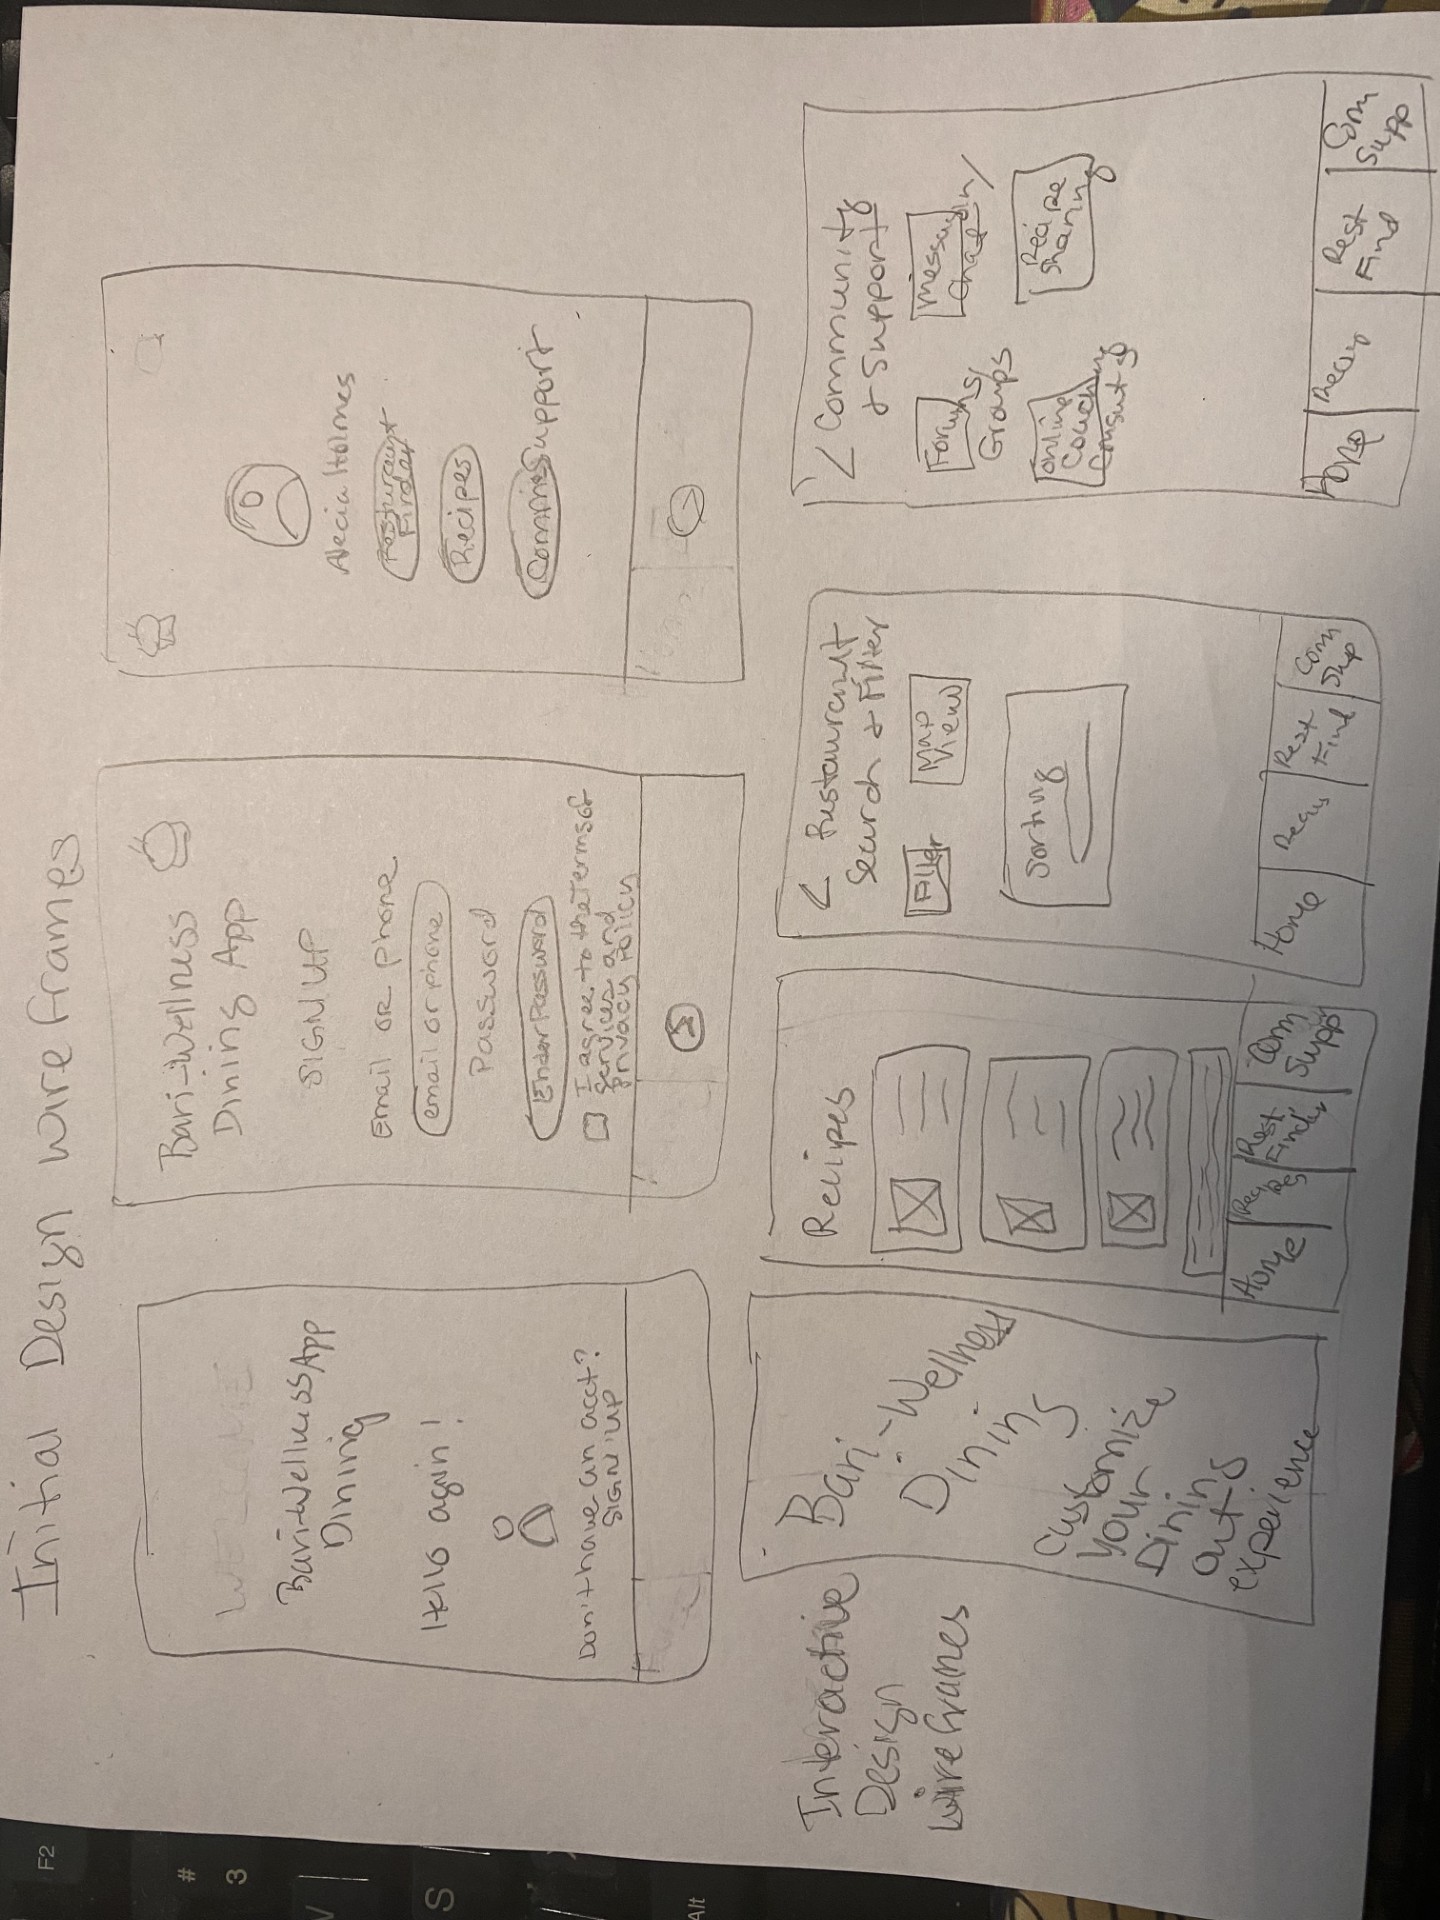 Initial Design wireframes
WELCOME
Bari-Wellness App
Dining
Hello again!
Don't have an acct?
SIGN UP
Bari-Wellness
Dining App
SIGN UP
Email OR phone
email or phone
Password
Enter Password
I agree to the Terms of
Services and
Privacy Policy
Alecia Holmes
Resturaunt
Finder
Recipes
Commine Support
Interactive
Design
wireframes
Bari-Wellness
Dining
Customize
your
Dining
out
experience
Recipes
Home
Rest
Find
Com
Supp
< Restaurant
Search & Filter
Filter
Map
View
Sorting
Home
Rest
Find
Com
Sup
< Community
& Support
Forums/
Groups
Recipe
Sharing
online
Coaching
Home
Rest
Find
Com
Supp
F2
#
3
S
Alt